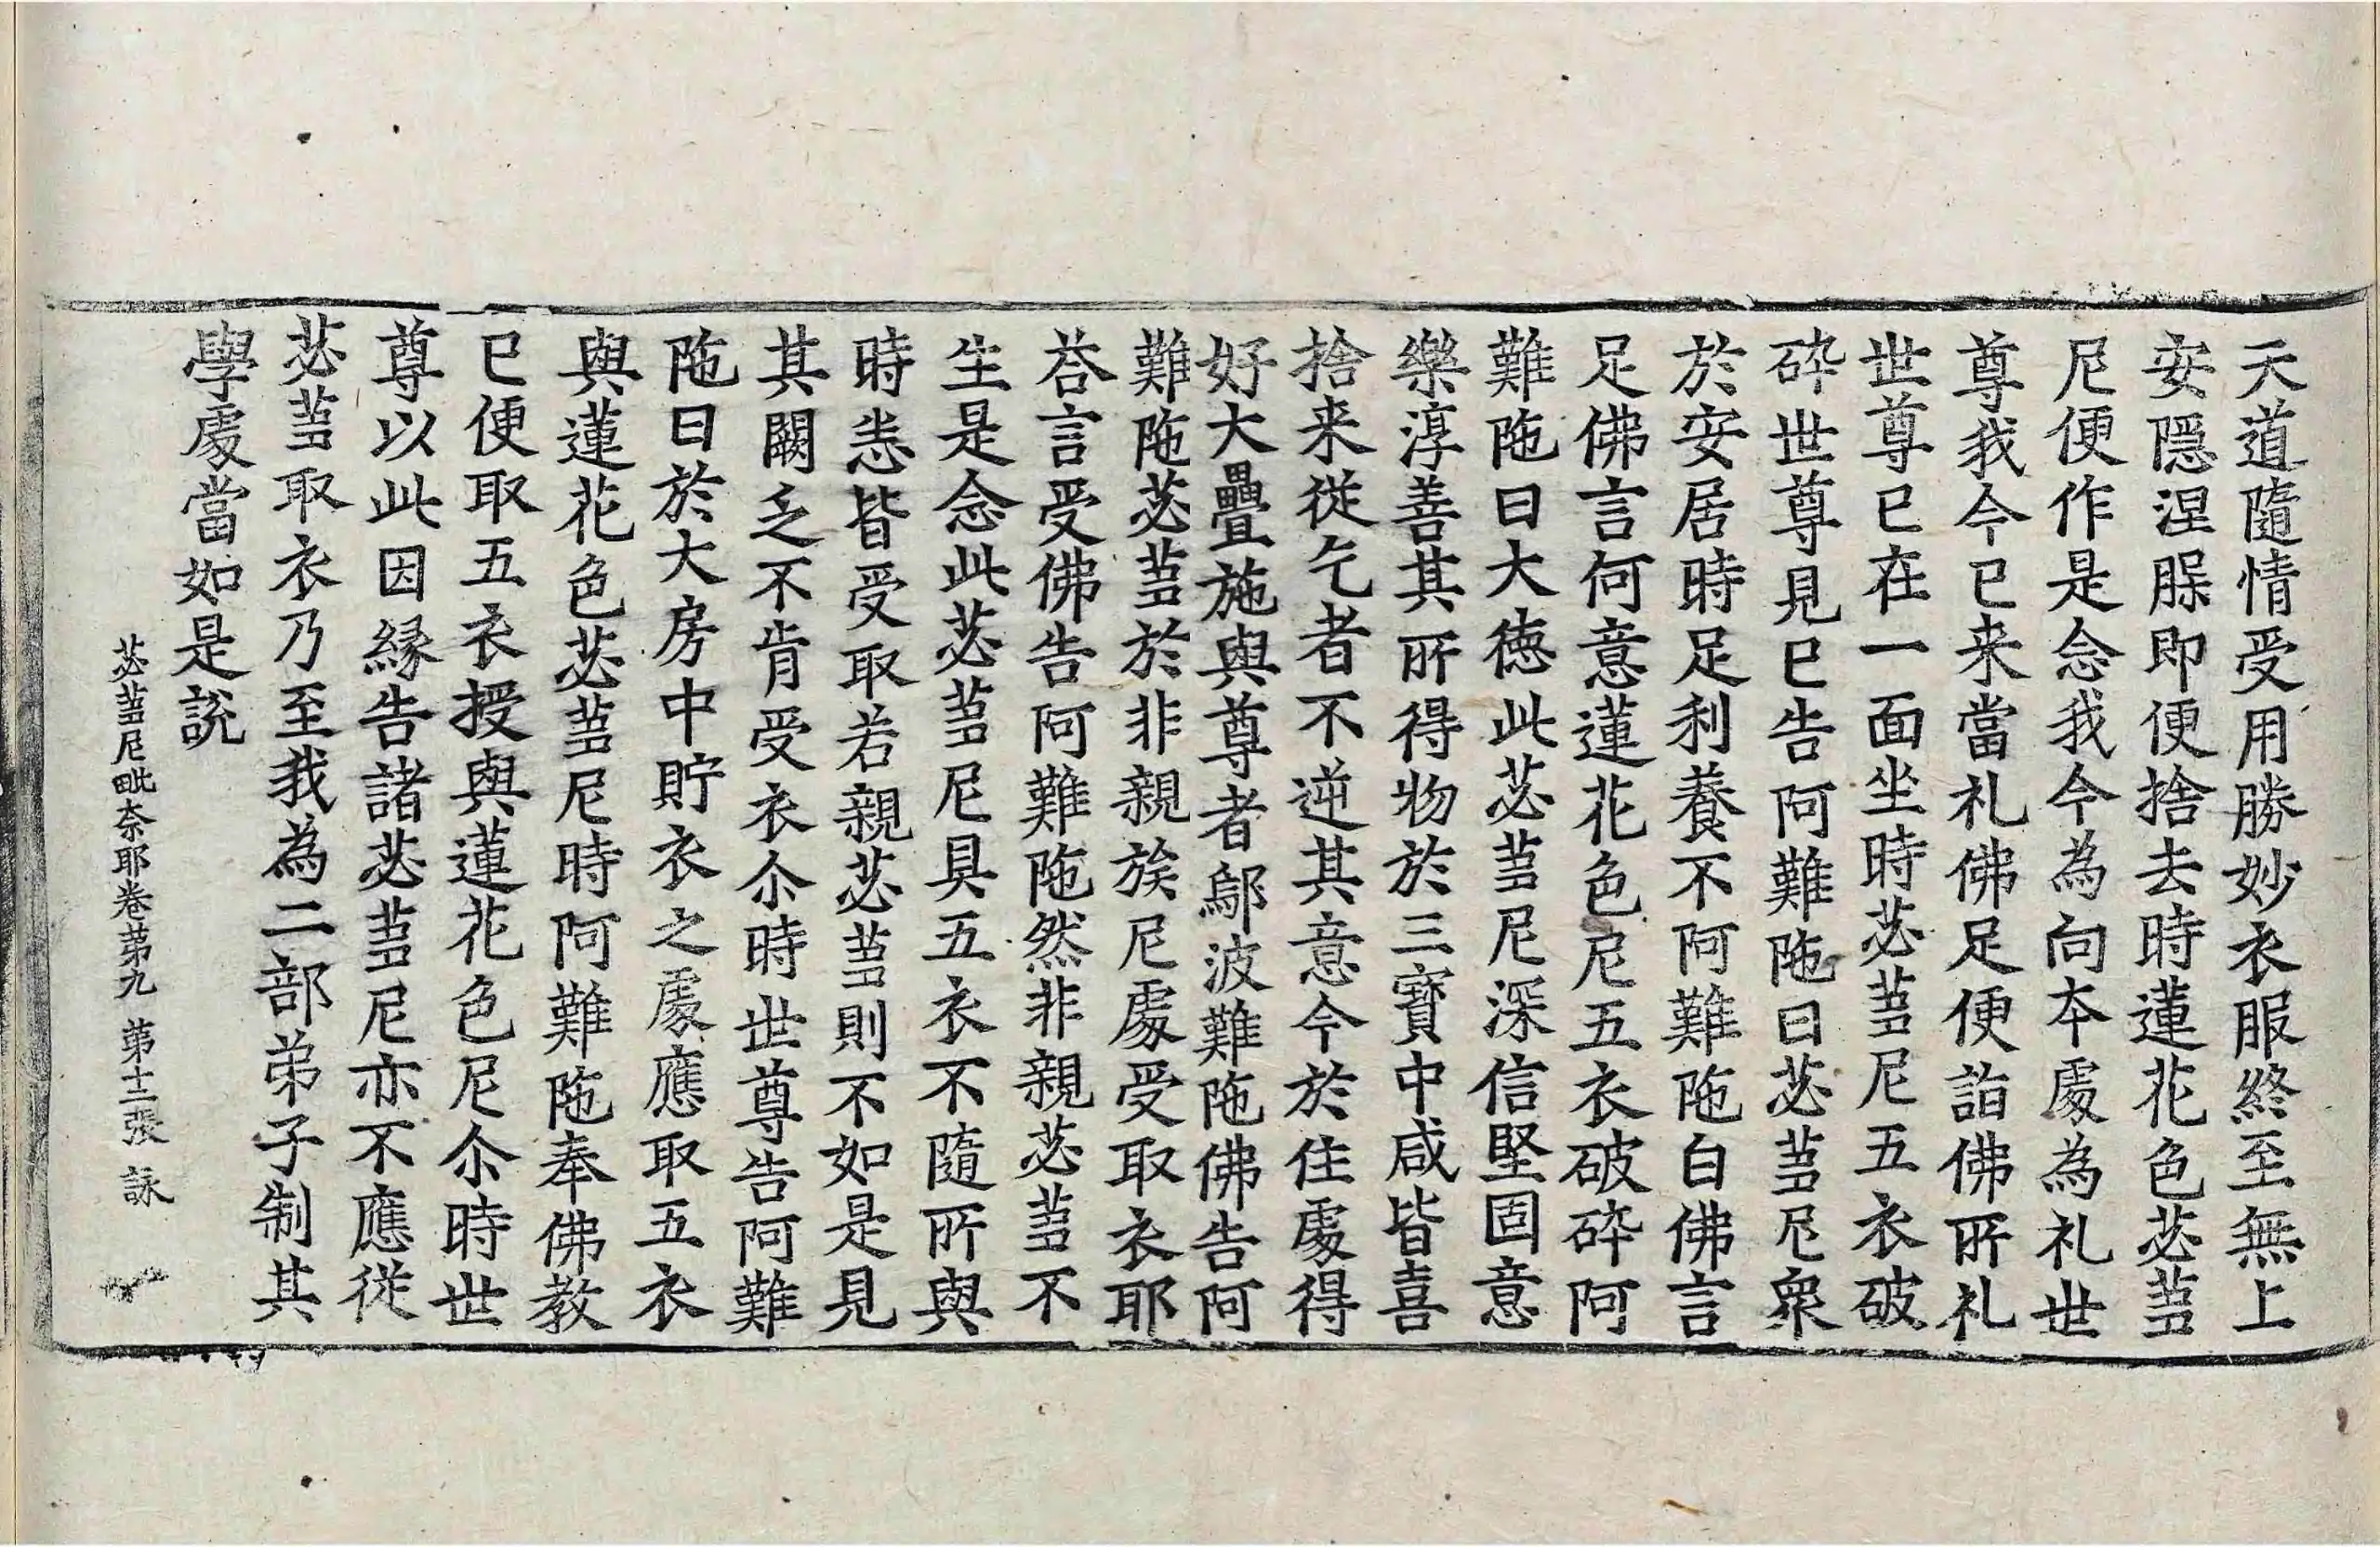 天道隨情受用勝妙衣服終至無上
安隱涅膎即便捨去時蓮花色苾蒭
尼便作是念我今為向本處為礼世
尊我今已来當礼佛足便詣佛所礼
世尊已在一面坐時苾蒭尼五衣破
碎世尊見已告阿難陁曰苾蒭尼衆
於安居時足利養不阿難陁白佛言
足佛言何意蓮花色尼五衣破碎阿
難陁曰大德此苾蒭尼深信堅固意
樂淳善其所得物於三寶中咸皆喜
捨来從乞者不逆其意今於住處得
好大疊施與尊者鄔波難陁佛告阿
難陁苾蒭於非親族尼處受取衣耶
荅言受佛告阿難陁然非親苾蒭不
生是念此苾蒭尼具五衣不隨所與
時悉皆受取若親苾蒭則不如是見
其闕乏不肯受衣尒時世尊告阿難
陁曰於大房中貯衣之處應取五衣
與蓮花色苾蒭尼時阿難陁奉佛教
已便取五衣授與蓮花色尼尒時世
尊以此因緣告諸苾蒭尼亦不應從
苾蒭取衣乃至我為二部弟子制其
學處當如是說
苾蒭尼毗奈耶卷苐九 苐十二張 詠